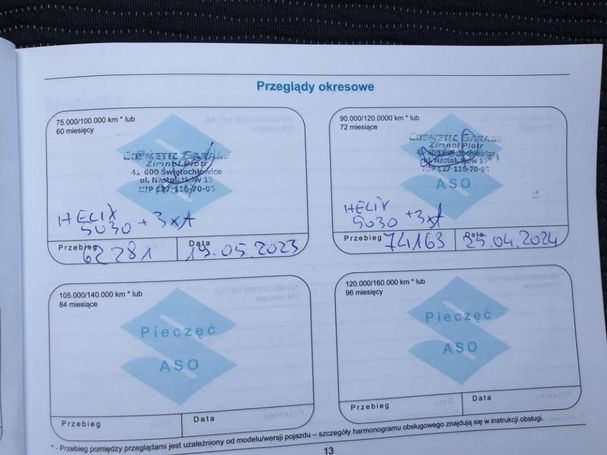 Przeglądy okresowe
75.000/100.000 km * lub
60 miesięcy
COSMETIC GARAGE
Zimnol Piotr
41-600 Świętochłowice
ul. Nastolatków 15
HELIX
5030 + 3xA
Przebieg
62281
Data
19.05.2023
90.000/120.0000 km * lub
72 miesiące
COSMETIC GARAGE
Zimnol Piotr
41-600 Świętochłowice
ul. Nastolatków 15
ASO
HELIX
5030 + 3xA
Przebieg
74163
Data
25.04.2024
105.000/140.000 km * lub
84 miesiące
Pieczęć
ASO
Przebieg
Data
120.000/160.000 km * lub
96 miesięcy
Pieczęć
ASO
Przebieg
Data
* - Przebieg pomiędzy przeglądami jest uzależniony od modelu/wersji pojazdu – szczegóły harmonogramu obsługowego znajdują się w instrukcji obsługi.
13